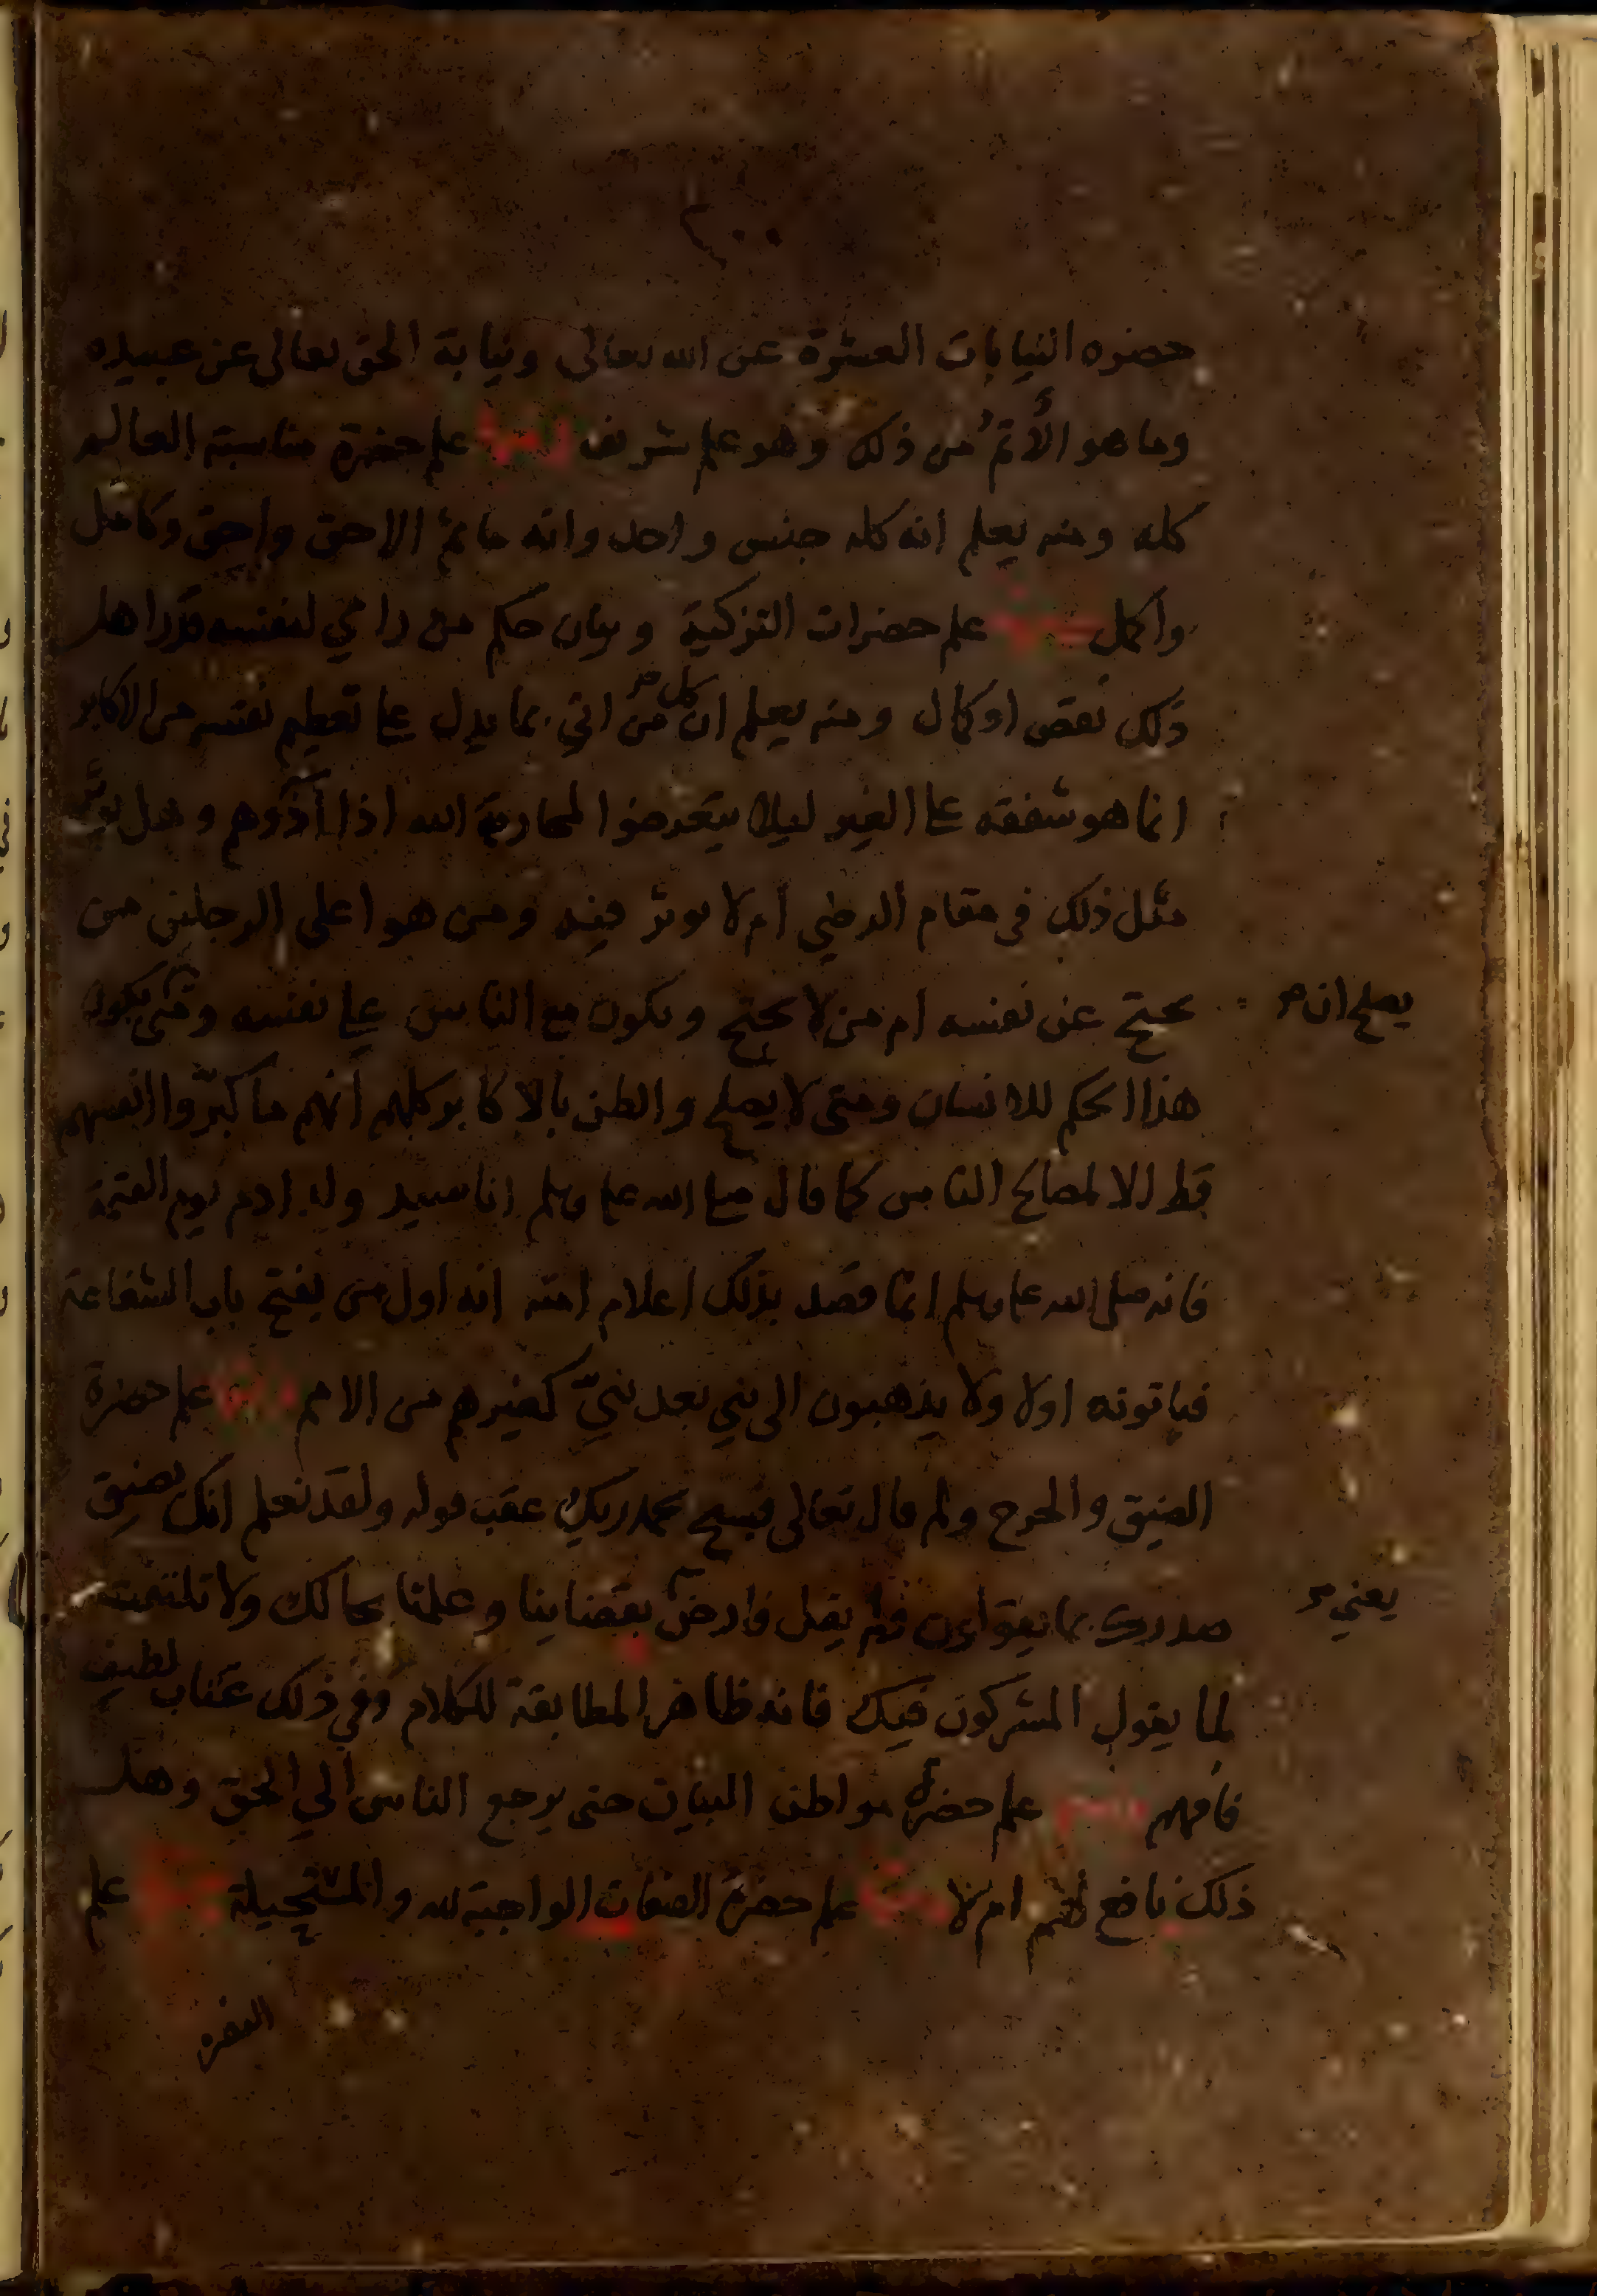 حضره النيابات العشرة عن الله تعالى ونيابة الحق تعالى عن عبيده
وما هو الأتمُّ من ذلك وهو علم شريف ومنها علم حضرة مناسبة العالم
كله ومنه يعلم انه كله جنس واحد وانه ما ثم الا حق واحق وكامل
واكمل ومنها علم حضرات التزكية وبيان حكم من راي لنفسه قدرا هل
ذلك نقص او كمال ومنه يعلم ان كل من اتي بما يدل على تعظيم نفسه من الاكابر
انما هو شفقه على الغير ليلا يتعرضوا لمحاربة الله اذا أذوهم وهل
مثل ذلك في مقام الرضي أم لا يوثر فيه ومن هو اعلى الرجلين من
يحتج عن نفسه ام من لا يحتج ويكون مع الناس على نفسه ومتى يكون
يصلح ان
هذا الحكم للانسان ومتى لا يصلح والظن بالاكابر كلهم انهم ما كبّروا انفسهم
قط الا لمصالح الناس كما قال صلى الله عليه وسلم انا سيد ولد ادم يوم القيمة
فانه صلى الله عليه وسلم انما قصد بذلك اعلام امته انه اول من يفتح باب الشفاعة
فياتونه اولا ولا يذهبون الى نبي بعد نبيّ كغيرهم من الامم ومنها علم حضرة
الضيق والحرج ولم قال تعالى فسبح بحمد ربك عقب قوله ولقد نعلم انك يضيق
صدرك بما يقولون فلم يقل فارض بقضاينا وعلمنا بحالك ولا تلتفت
يعني
لما يقول المشركون فيك فانه ظاهر المطابقة للكلام وفي ذلك عتاب لطيف
فافهم ومنها علم حضرة مواطن البيان حتى يرجع الناس الي الحق وهل
ذلك نافع لهم ام لا ومنها علم حضرة الصفات الواجبة لله والمستحيلة ومنها علم